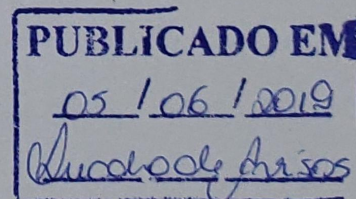 PUBLICADO EM
05 / 06 / 2019
Quadro de Avisos